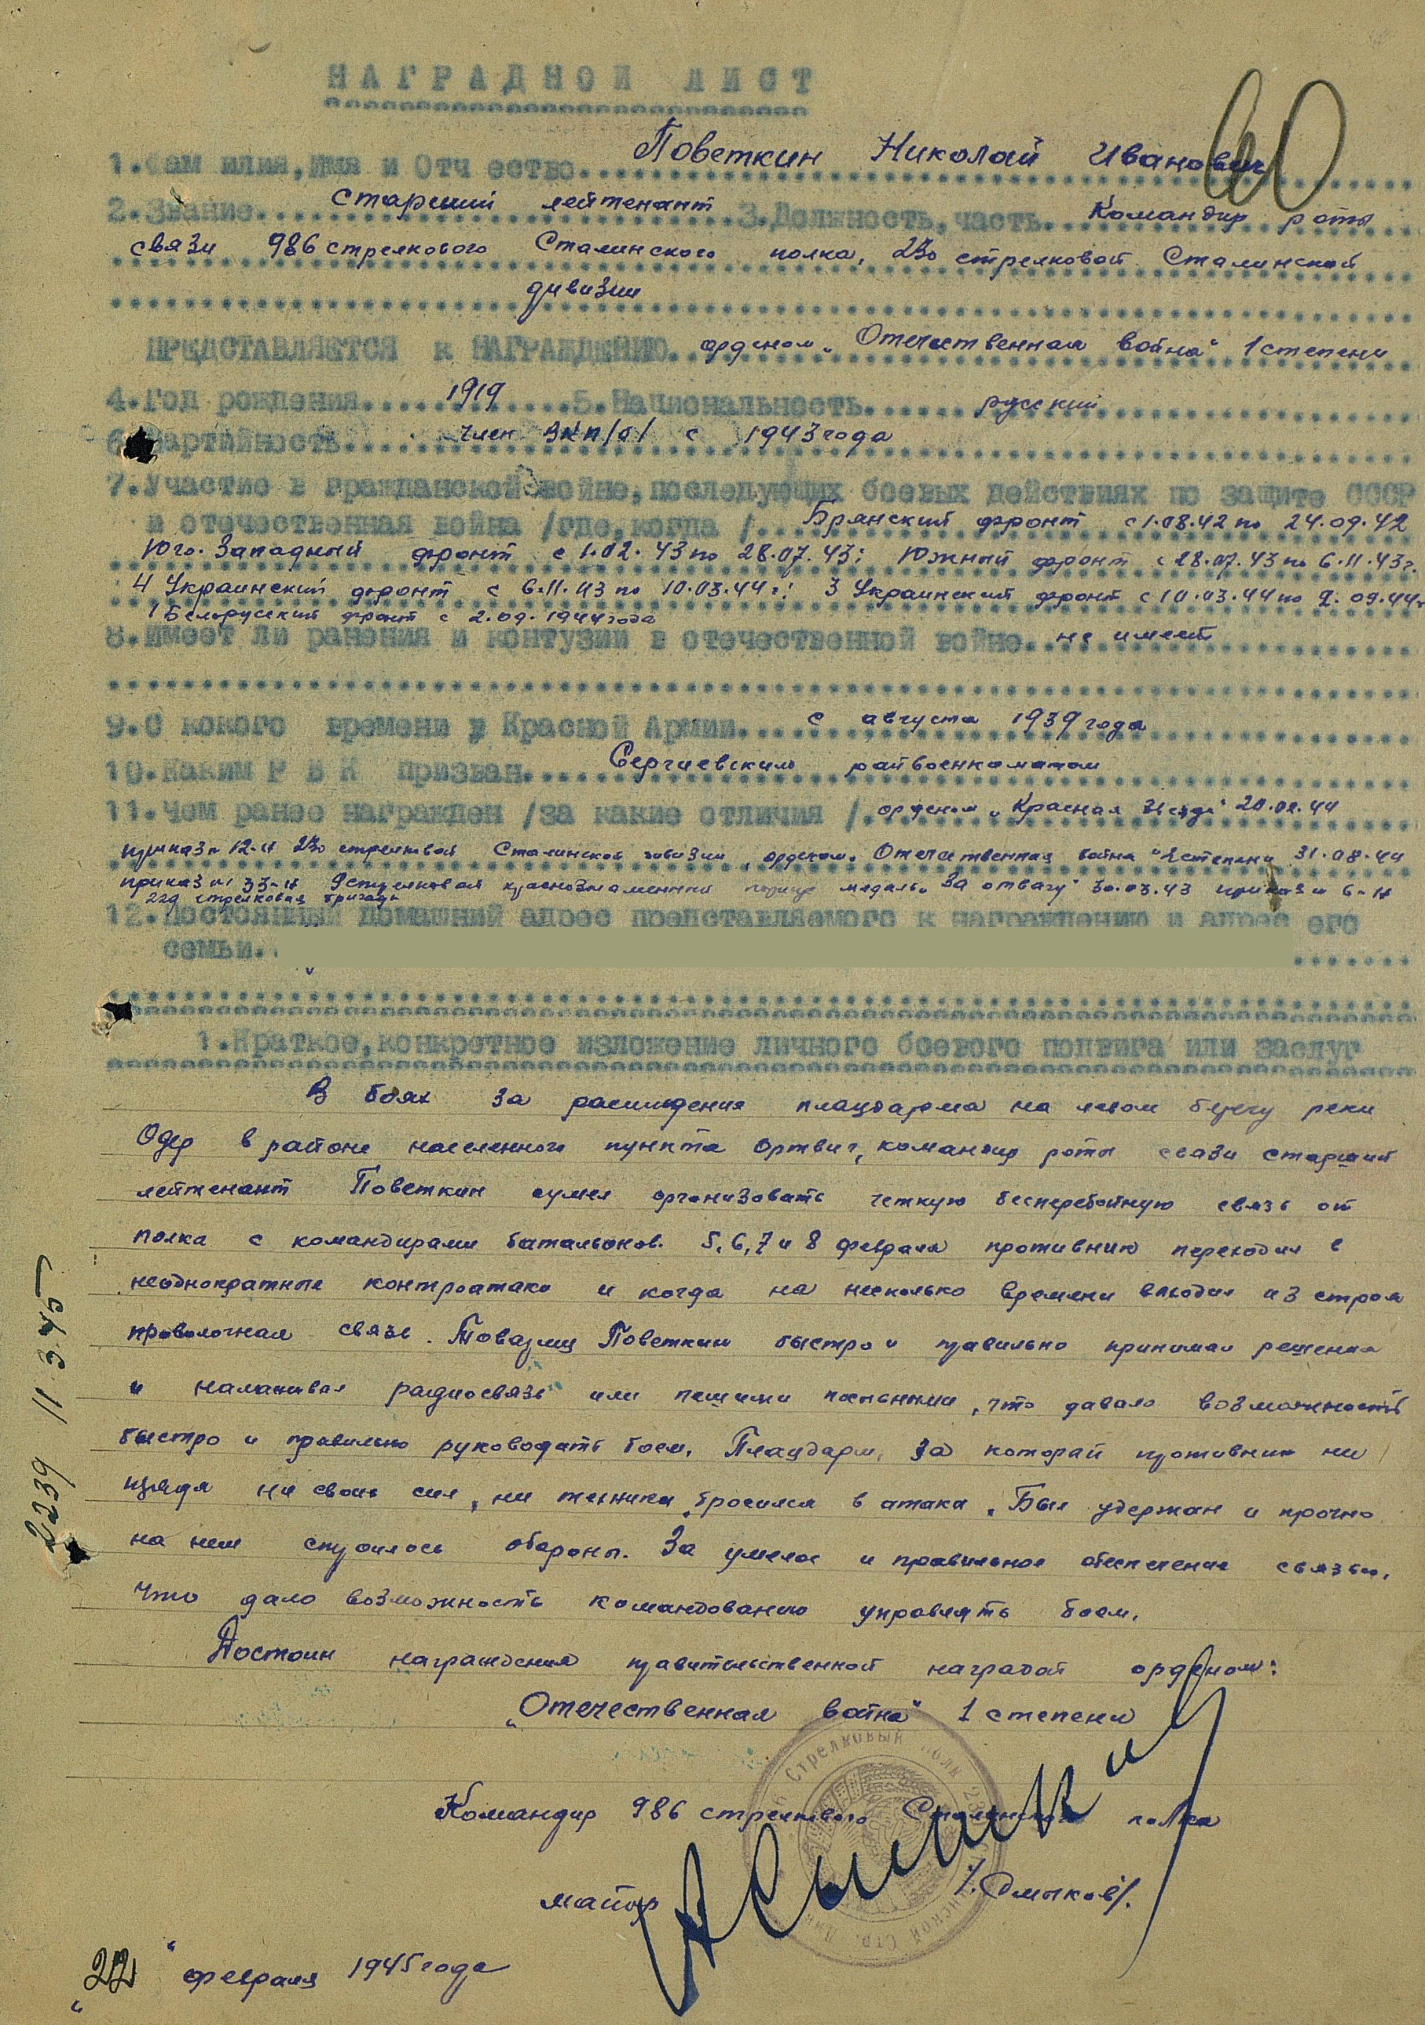 НАГРАДНОЙ ЛИСТ
1.Фамилия,Имя и Отчество Поветкин Николай Иванович
2.Звание старший лейтенант 3.Должность,часть Командир роты
связи 986 стрелкового Сталинского полка, 230 стрелковой Сталинской
дивизии
ПРЕДСТАВЛЯЕТСЯ к НАГРАЖДЕНИЮ орденом „Отечественная война" 1 степени
4.Год рождения 1919 5.Национальность русский
6.Партийность член ВКП/б/ с 1943 года
7.Участие в гражданской войне,последующих боевых действиях по защите СССР
и отечественная война /где,когда/ Брянский фронт с 1.08.42 по 24.09.42
Юго.Западный фронт с 1.02.43 по 28.07.43; Южный фронт с 28.07.43 по 6.11.43г.
4 Украинский фронт с 6.11.43 по 10.03.44 г; 3 Украинский фронт с 10.03.44 по 2.09.44г
1 Белорусский фронт с 2.09.1944 года
8.Имеет ли ранения и контузии в отечественной войне не имеет
9.С кокого времени в Красной Армии с августа 1939 года
10.Каким Р В К призван Сергиевским райвоенкоматом
11.Чем ранее награжден /за какие отличия/ орденом „Красная Звезда" 20.02.44
приказ № 12-н 230 стрелковой Сталинской дивизии, орденом „Отечественная война" 2 степени 31.08.44
приказ № 33-н 9 стрелковая краснознаменный медаль „За отвагу" 30.03.43 приказ № 6-н
229 стрелковая бригада
12.Постоянный домашний адрес представляемого к награждению и адрес его
семьи.
1.Краткое,конкретное изложение личного боевого подвига или заслуг
В боях за расширения плацдарма на левом берегу реки
Одер в районе населенного пункта Ортвиг, командир роты связи старший
лейтенант Поветкин сумел организовать четкую бесперебойную связь от
полка с командирами батальонов. 5,6,7 и 8 февраля противник переходил в
неоднократные контратаки и когда на несколько времени выходил из строя
проволочная связь. Товарищ Поветкин быстро и правильно принимал решения
и налаживал радиосвязь или пешими посыльными, что давало возможность
быстро и правильно руководить боем. Плацдарм, за который противник не
щядя ни своих сил, ни техники, бросился в атаки. Был удержан и прочно
на нем строилось оборона. За умелое и правильное обеспечение связью,
что дало возможность командованию управлять боем.
Достоин награждения правительственной наградой орденом:
„Отечественная война" 1 степени
Командир 986 стрелкового Сталинского полка
майор /Смыков/.
„22" февраля 1945 года
2239 11.3.45